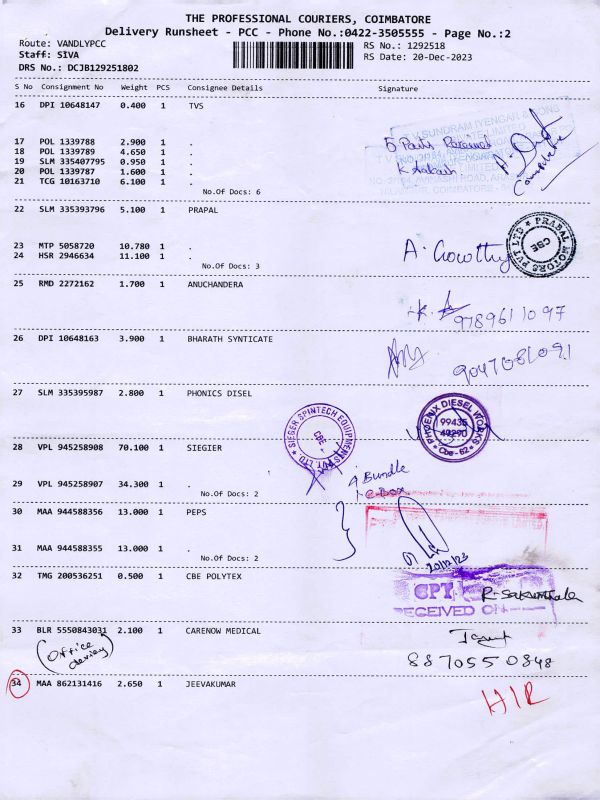 THE PROFESSIONAL COURIERS, COIMBATORE
Delivery Runsheet - PCC - Phone No.:0422-3505555 - Page No.:2
Route: VANDLYPCC RS No.: 1292518
Staff: SIVA RS Date: 20-Dec-2023
DRS No.: DCJB129251802
S No Consignment No Weight PCS Consignee Details Signature
16 DPI 10648147 0.400 1 TVS
17 POL 1339788 2.900 1 .
18 POL 1339789 4.650 1 .
19 SLM 335407795 0.950 1 .
20 POL 1339787 1.600 1 .
21 TCG 10163710 6.100 1 .
No.Of Docs: 6
22 SLM 335393796 5.100 1 PRAPAL
PRABAL MOTORS PVT LTD
CBE
23 MTP 5058720 10.780 1 .
24 HSR 2946634 11.100 1 .
No.Of Docs: 3
25 RMD 2272162 1.700 1 ANUCHANDERA
9789611097
26 DPI 10648163 3.900 1 BHARATH SYNTICATE
27 SLM 335395987 2.800 1 PHONICS DISEL
PHOENIX DIESEL WORKS
99435
49290
Cbe-62
SIEGER SPINTECH EQUIPMENTS PVT. LTD
CBE
28 VPL 945258908 70.100 1 SIEGIER
4 Bundle
29 VPL 945258907 34.300 1 .
No.Of Docs: 2
30 MAA 944588356 13.000 1 PEPS
31 MAA 944588355 13.000 1 .
No.Of Docs: 2
20/12/23
32 TMG 200536251 0.500 1 CBE POLYTEX
CPT
RECEIVED ON
33 BLR 5550843031 2.100 1 CARENOW MEDICAL
Office
8870550848
34 MAA 862131416 2.650 1 JEEVAKUMAR